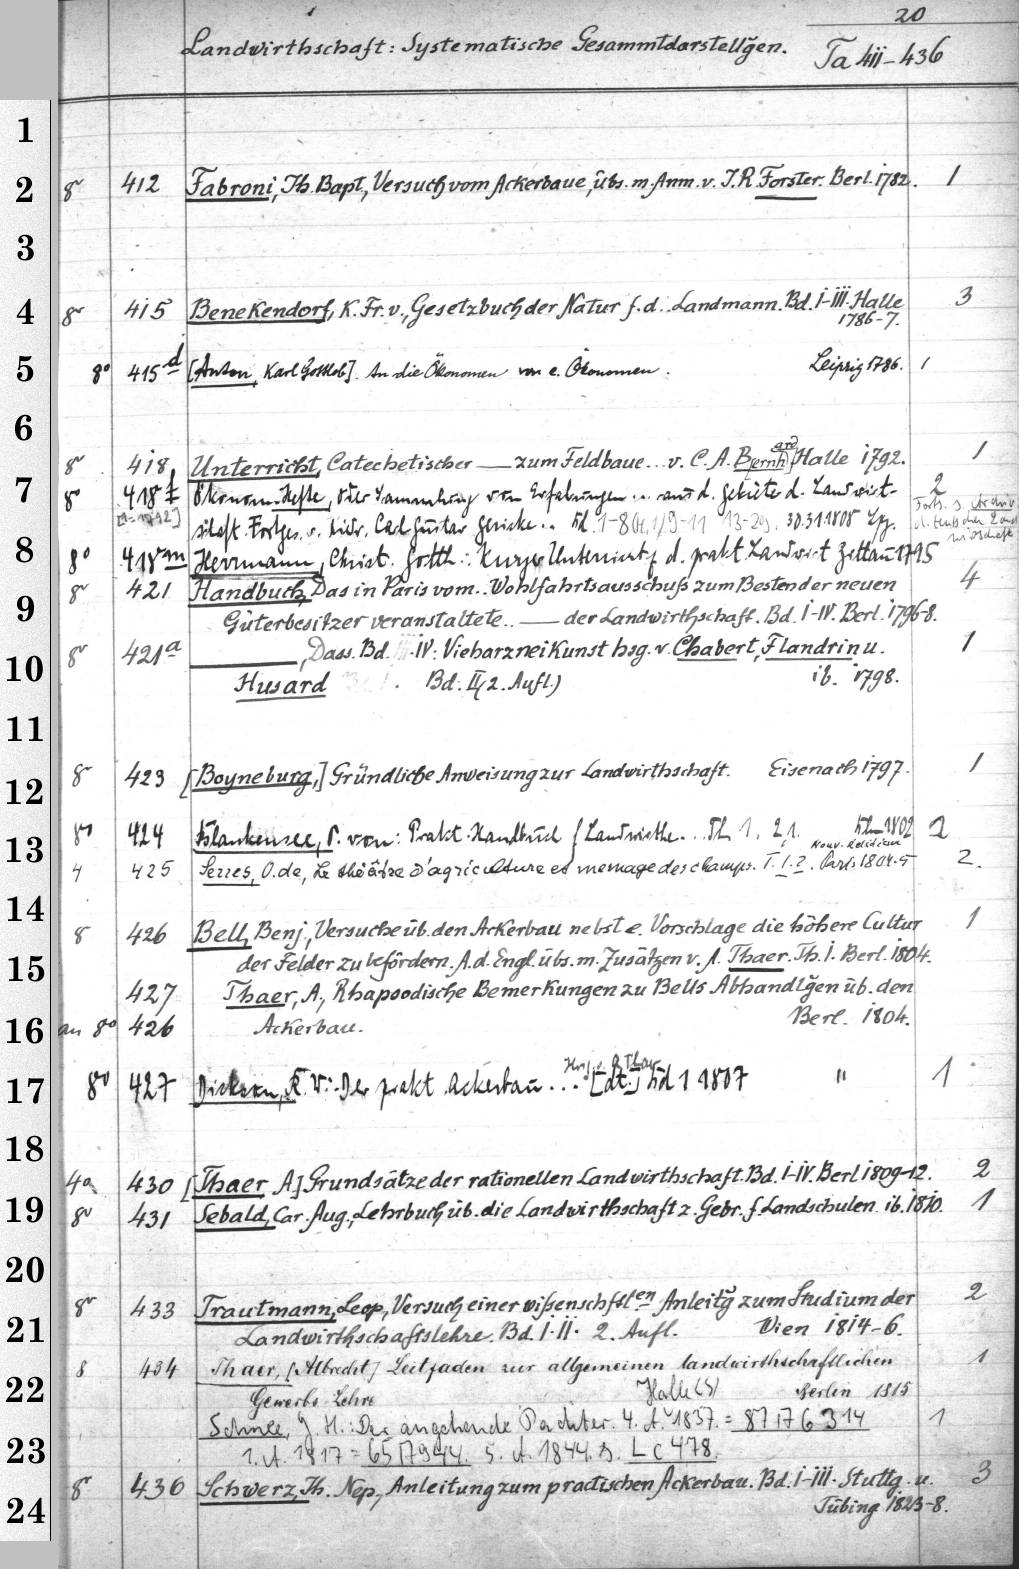 20
Landwirthschaft: Systematische Gesammtdarstellg̃en.
Ta 411-436
1
2 8º 412 Fabroni, Jh. Bapt., Versuch vom Ackerbaue, übs. m. Anm. v. J. R. Forster. Berl. 1782. 1
3
4 8º 415 Benekendorf, K. Fr. v., Gesetzbuch der Natur f. d. Landmann. Bd. I-III. Halle 3
1786-7.
5 8º 415d [Anton, Karl Gottlob]. An die Ökonomen von e. Ökonomen. Leipzig 1786. 1
6
8º 418 Unterricht, Catechetischer — zum Feldbaue... v. C. A. Bernh[ard] Halle 1792. 1
7 8º 418f Ökonom. Hefte, oder Sammlung von Erfahrungen... aus d. Gebiete d. Landwirt- 2
[1=1792] schaft. Fortges. v. Carl Gustav Gericke.. Bd. 1-8. 9-11 13-29. 30.31.1808 Lpz. Forts. s. Archiv d. teutschen Landwirtschaft
8 8º 418m Herrmann, Christ. Gotth.: Kurzer Unterricht f. d. prakt. Landwirt Zittau 1795
8º 421 Handbuch, Das in Paris vom.. Wohlfahrtsausschuß zum Besten der neuen 4
9 Güterbesitzer veranstaltete.. — der Landwirthschaft. Bd. I-IV. Berl. 1796-8.
10 8º 421a —, Dass. Bd. III-IV: Vieharzneikunst hsg. v. Chabert, Flandrin u. 1
Husard Bd. II (2. Aufl.) ib. 1798.
11
12 8º 423 [Boyneburg,] Gründliche Anweisung zur Landwirthschaft. Eisenach 1797. 1
13 8º 424 Blankensee, P. von: Prakt. Handbuch f. Landwirthe... Th 1. 2,1. Bln 1802 2
4 425 Serres, O. de, Le théâtre d'agriculture et menage des champs. T. 1.2. Nouv. édition Paris 1804-5 2.
14
8 426 Bell, Benj., Versuche üb. den Ackerbau nebst e. Vorschlage die höhere Cultur 1
15 der Felder zu befördern. A. d. Engl. übs. m. Zusätzen v. A. Thaer. Th. I. Berl. 1804.
427 Thaer, A., Rhapsodische Bemerkungen zu Bells Abhandlg̃en üb. den
16 an 8º 426 Ackerbau. Berl. 1804.
17 8º 427 Dickson, R. W.: Der prakt. Ackerbau... Hrsg. v. A. Thaer [dt.] Bd 1 1807 " 1
18
4º 430 [Thaer, A] Grundsätze der rationellen Landwirthschaft. Bd. I-IV. Berl 1809-12. 2
19 8º 431 Sebald, Car. Aug., Lehrbuch üb. die Landwirthschaft z. Gebr. f. Landschulen. ib. 1810. 1
20
8º 433 Trautmann, Leop., Versuch einer wißenschftlen Anleitg̃ zum Studium der 2
21 Landwirthschaftslehre. Bd. I-II. 2. Aufl. Wien 1814-6.
8 434 Thaer, [Albrecht] Leitfaden zur allgemeinen landwirthschaftlichen 1
22 Gewerbs-Lehre Halle (S) Berlin 1815
Schnee, G. H.: Der angehende Pachter. 4. A. 1837. = 87 17 6 314 1
23 1. A. 1817 = 65 17944. 5. A. 1844. s. Lc 478.
8º 436 Schwerz, Jh. Nep., Anleitung zum practischen Ackerbau. Bd. I-III. Stuttg. u. 3
24 Tübing. 1823-8.